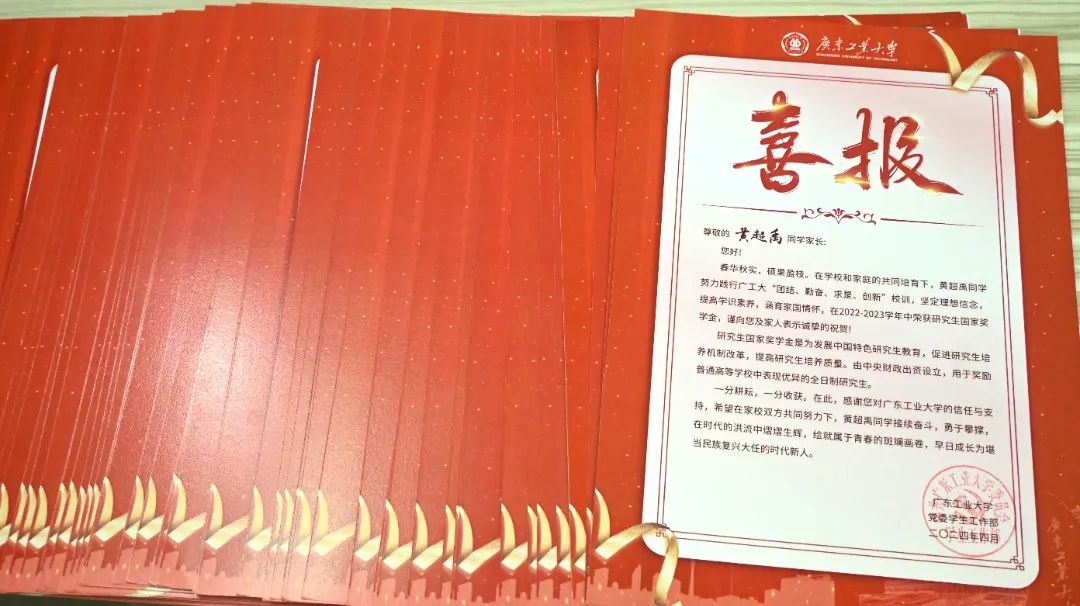 廣東工業大學
GUANGDONG UNIVERSITY OF TECHNOLOGY
喜报
尊敬的 黄超禹 同学家长:
您好!
春华秋实，硕果盈枝。在学校和家庭的共同培育下，黄超禹同学
努力践行广工大“团结、勤奋、求是、创新”校训，坚定理想信念，
提高学识素养，涵育家国情怀，在2022-2023学年中荣获研究生国家奖
学金，谨向您及家人表示诚挚的祝贺!
研究生国家奖学金是为发展中国特色研究生教育，促进研究生培
养机制改革，提高研究生培养质量。由中央财政出资设立，用于奖励
普通高等学校中表现优异的全日制研究生。
一分耕耘，一分收获。在此，感谢您对广东工业大学的信任与支
持，希望在家校双方共同努力下，黄超禹同学接续奋斗，勇于攀撑，
在时代的洪流中熠熠生辉，绘就属于青春的斑斓画卷，早日成长为堪
当民族复兴大任的时代新人。
广东工业大学
党委学生工作部
二〇二四年四月